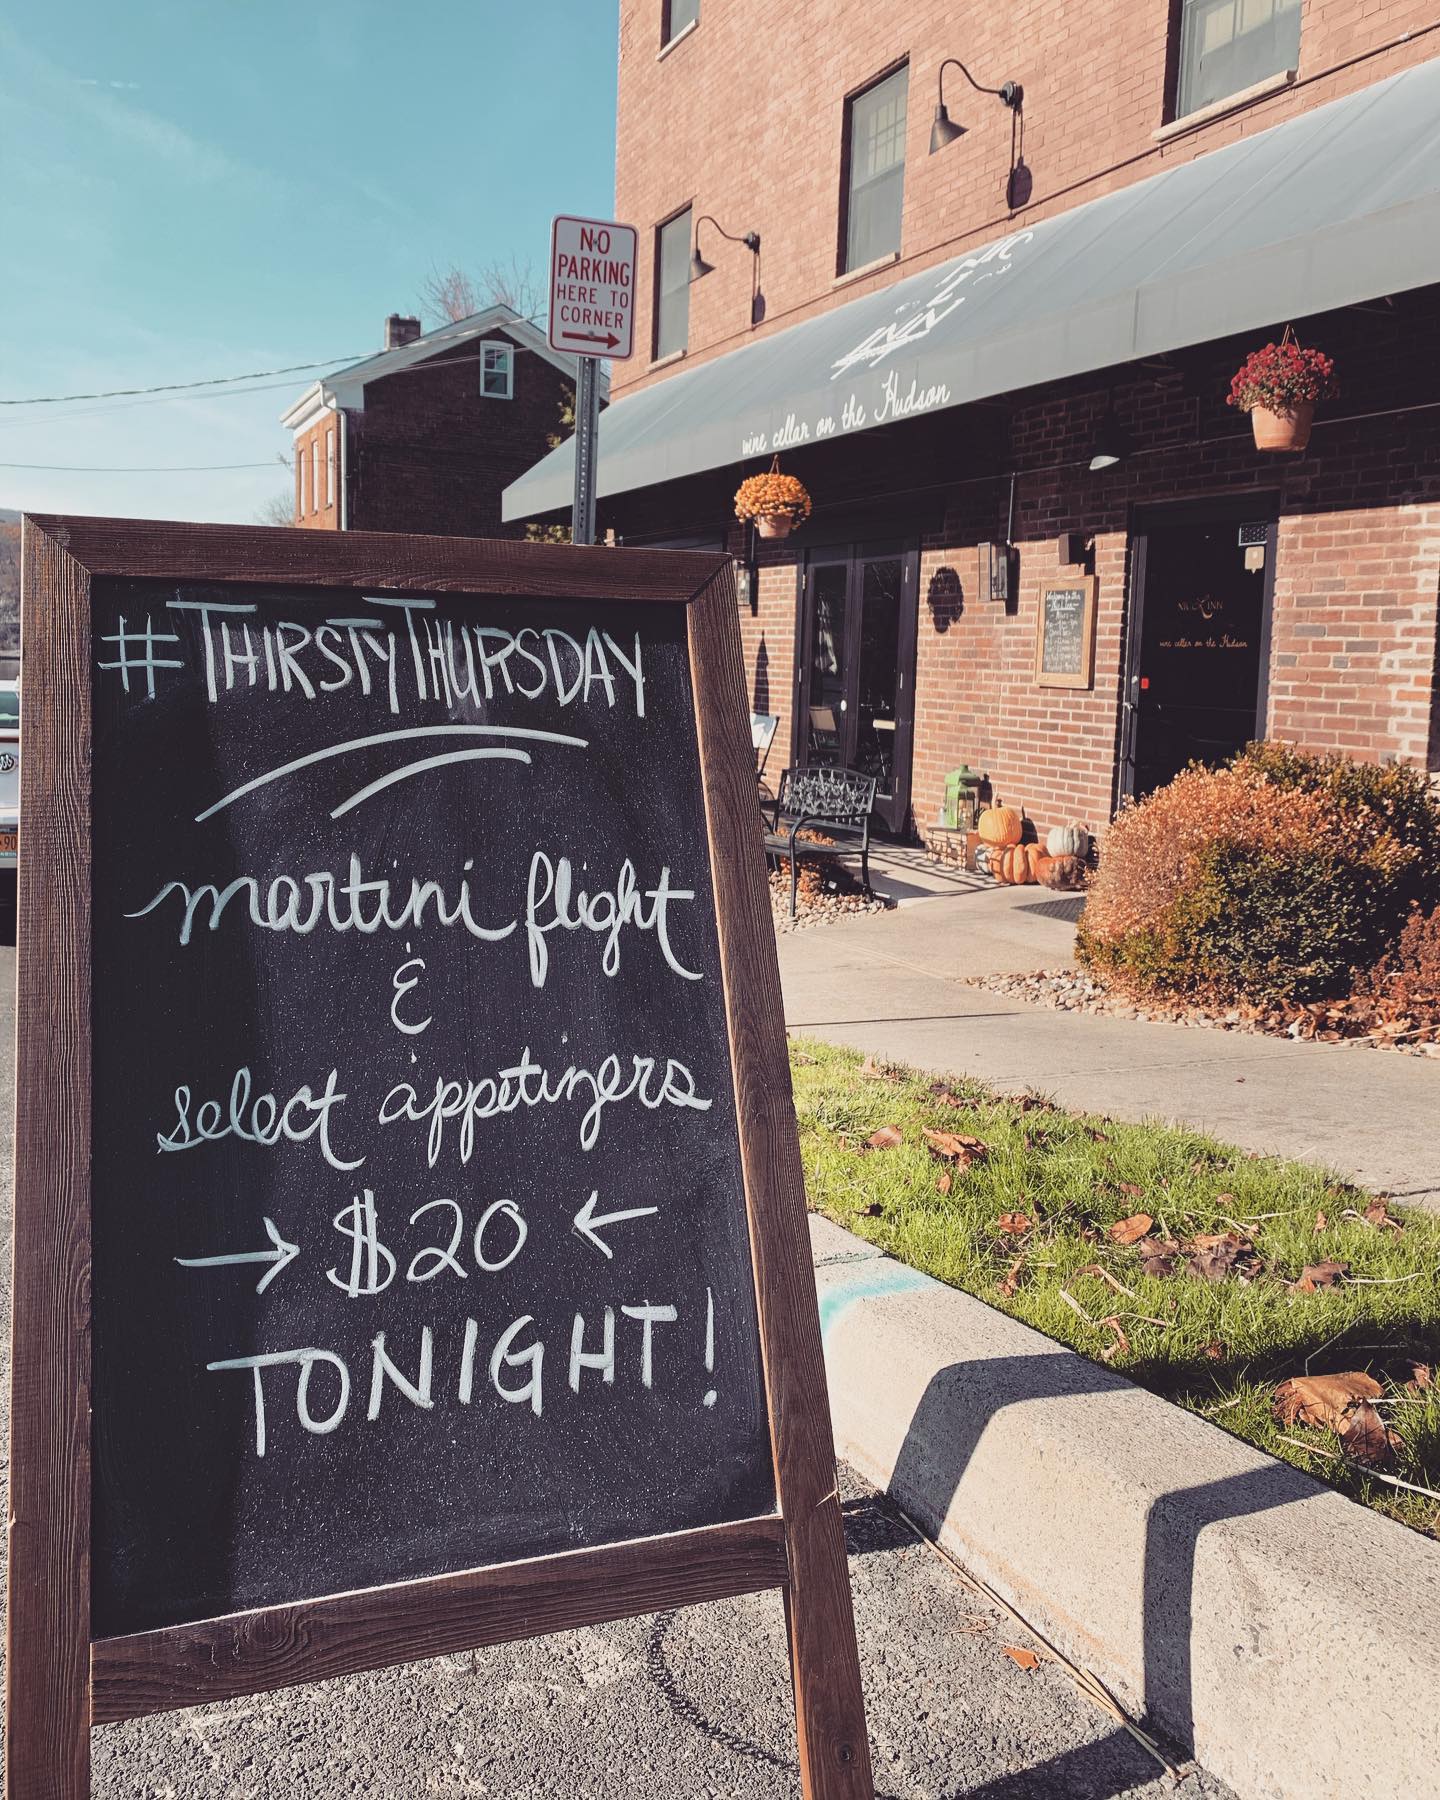 #THIRSTYTHURSDAY
martini flight
&
select appetizers
→ $20 ←
TONIGHT!
NO
PARKING
HERE TO
CORNER
wine cellar on the Hudson
NICL INN
wine cellar on the Hudson